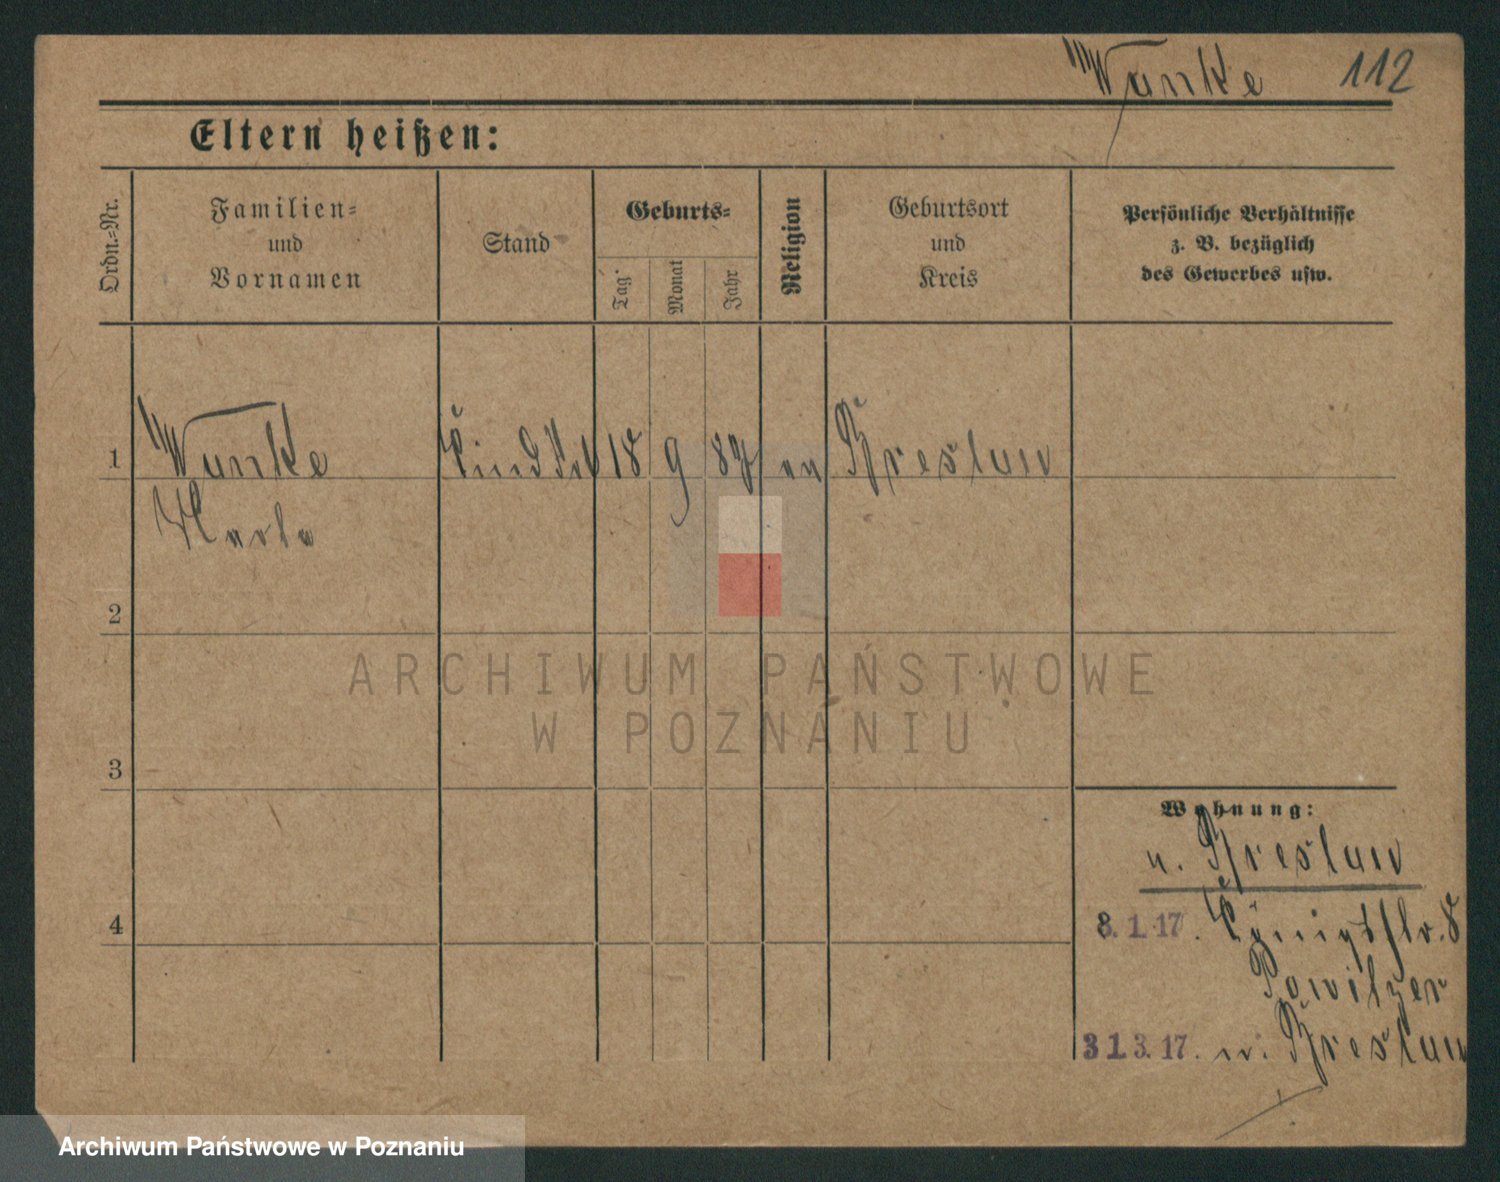 Wunke 112
Eltern heißen:
Ordn.=Nr.
Familien=
und
Vornamen
Stand
Geburts=
Tag
Monat
Jahr
Religion
Geburtsort
und
Kreis
Persönliche Verhältnisse
z. B. bezüglich
des Gewerbes usw.
1 Wunke 18 9 82 Breslau
2
3
4
ARCHIWUM PAŃSTWOWE
W POZNANIU
Wohnung:
v. Breslau
8.1.17. Königsstr. 8
31.3.17. n. Breslau
Archiwum Państwowe w Poznaniu